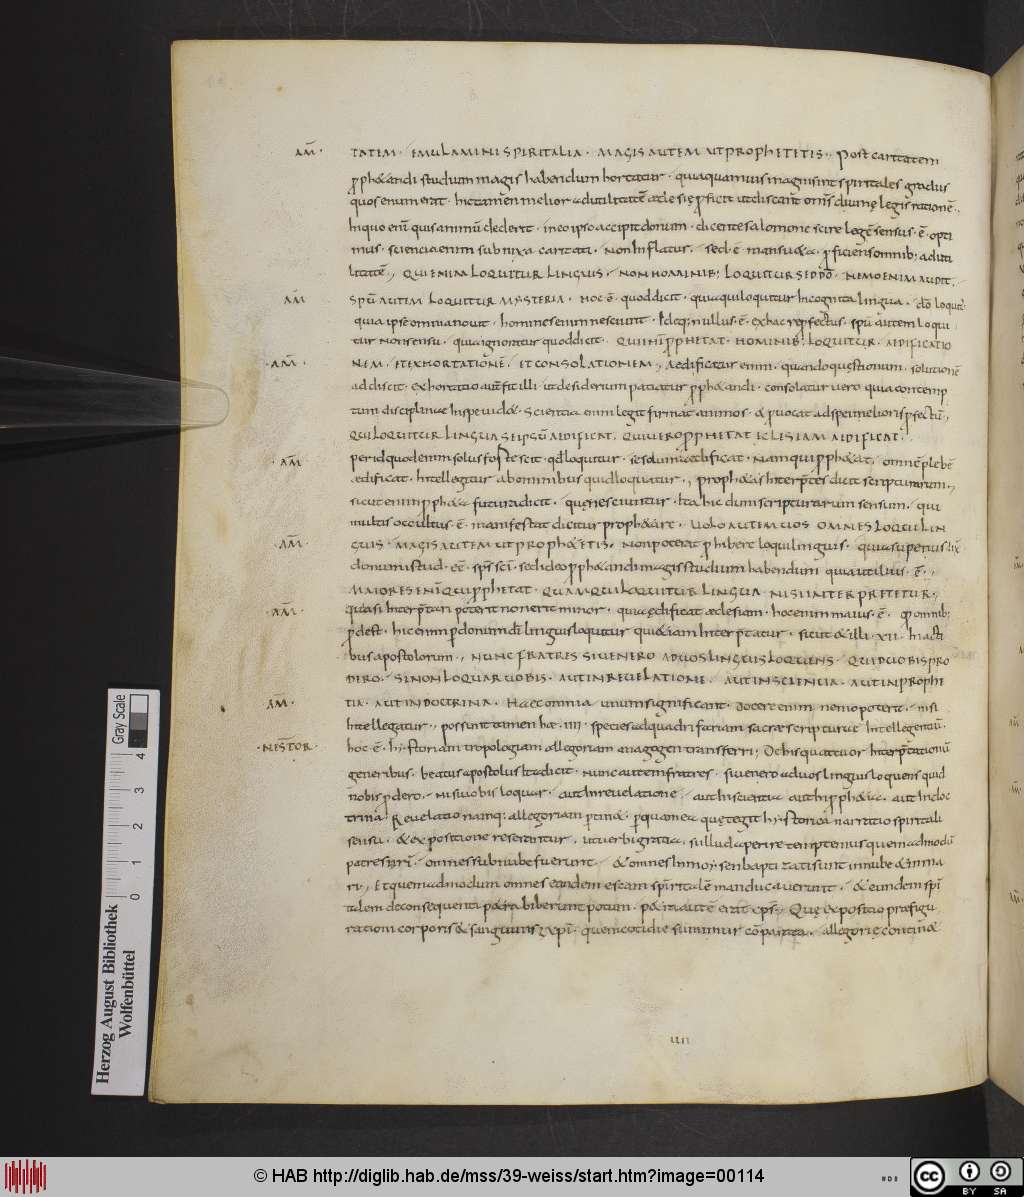 AM̅ · TATEM · EMULAMINI SPIRITALIA · MAGIS AUTEM UT PROPHETETIS · Post caritatem
ꝓphetandi studium magis habendum hortatur · quia quamuis magni sint spiritales gradus
quos enumerat · hic tamen melior
In quo eni̅ quis animu̅ dederit · in eo ipso accipit donum · dicente salomone scire lege̅ sensus · e̅ · opti
mus · sciencia enim subnixa caritati · non inflatur · sed e̅ mansueta · ꝓficiens omnib; ad uti
litate̅ , QUI ENIM LOQUITUR LINGUIS · NON HOMINIB; LOQUITUR SED D̅O · NEMO ENIM AUDIT ·
AM̅ SPU̅ AUTEM LOQUITUR MYSTERIA · hoc e̅ · quod dicit · quia qui loquitur incognita lingua · d̅o loquit̅
quia ipse omnia nouit · homines enim nesciunt · Ideoq; nullus · e̅ · ex hac re ꝓfectus · spu̅ autem loqui
tur non sensu · quia ignoratur quod dicit · QUI UERO ꝒPHETAT · HOMINIB; LOQUITUR · AEDIFICATIO
·AM̅· NEM · ET EXHORTATIONE̅ · ET CONSOLATIONEM , Aedificatur enim · quando quęstionum · solutione̅
addiscit · exhortatio aut̅ fit illi · ut desiderium patiatur ꝓphetandi · consolatur uero quia contemp
tum disciplinae in spe uidet · Scientia enim legis firmat animos · et ꝓuocat ad spem melioris ꝓfectu̅ ,
QUI LOQUITUR LINGUA SEIPSU̅ AEDIFICAT · QUI UERO PROPHETAT ECLESIAM AEDIFICAT ·
·AM̅ per id quod enim solus forte scit · qd̅ loquitur · se solum aedificat · Nam qui ꝓphetat · omne̅ plebe̅
aedificat · Intellegitur ab omnibus quid loquatur · , prophetas Interp̅tes dicit scripturarum ,
sicut enim ꝓpheta · futura dicit · quę nesciuntur · Ita hic dum scripturarum sensum · qui
multis occultus · e̅ · manifestat dicitur prophetare · UOLO AUTEM UOS OMNES LOQUI LIN
·AM̅· GUIS · MAGIS AUTEM UT PROPHETETIS , Non poterat ꝓhibere loqui linguis · quia superius dix
donum istud · e̅e̅ · sp̅s̅ sc̅i̅ · sed ideo ꝓphetandi magis studium habendum quia utilius · e̅ ·
MAIOR EST ENI̅ QUI ꝒPHETAT · QUAM QUI LOQUITUR LINGUA · NISI INTERPRETETUR ,
·AM̅· quasi Interp̅tari poterit non erit minor · quia ędificat aeclesiam · hoc enim maius · e̅ · qd̅ omnib;
ꝓdest · hic enim ꝑ donum d̅i̅ linguis loquitur qui etiam Interp̅tatur · sicut et illi · XII · In acti
bus apostolorum , NUNC FRATRES SI UENERO AD UOS LINGUIS LOQUENS · QUID UOBIS PRO
DERO · SI NON LOQUAR UOBIS · AUT IN REUELATIONE · AUT IN SCIENCIA · AUT IN PROPHE
AM̅· TIA · AUT IN DOCTRINA · Haec omnia unum significant · docere enim nemo poterit · nisi
Intellegatur , possunt tamen hae · IIII · species ad quadrifariam sacrae scripturae Intellegentia̅ ·
·NES̅TOR· hoc · e̅ · hystoriam tropologiam allegoriam anagogen transferri ; De his quatuor Interp̅tationu̅
generibus · beatus apostolus Ita dicit · Nunc autem fratres · si uenero ad uos linguis loquens quid
uobis ꝓdero , nisi uobis loquar · aut In reuelatione aut In scientia aut In ꝓphetia · aut In doc
trina Reuelatio namq; allegoriam ꝑtinet · ꝑ quam ea quę tegit hystorica narratio spiritali
sensu · et expositione reserantur · ut uerbi gratia , si illud aperire temptemus quemadmodu̅
patres n̅r̅i̅ · omnes sub nube fuerunt · et omnes In moysen baptizati sunt in nube et in ma
ri , Et quemadmodum omnes eandem escam sp̅irtale̅ manducauerunt · et eundem spi̅
talem de consequenti petra biberunt potum · petra aute̅ erat xp̅s̅ , Quę expositio praefigu
rationi corporis et sanguinis xp̅i̅ · quem cotidie sumimur co̅parata · allegorię continet
Gray Scale
0 1 2 3 4
Herzog August Bibliothek
Wolfenbüttel
© HAB http://diglib.hab.de/mss/39-weiss/start.htm?image=00114
cc BY SA